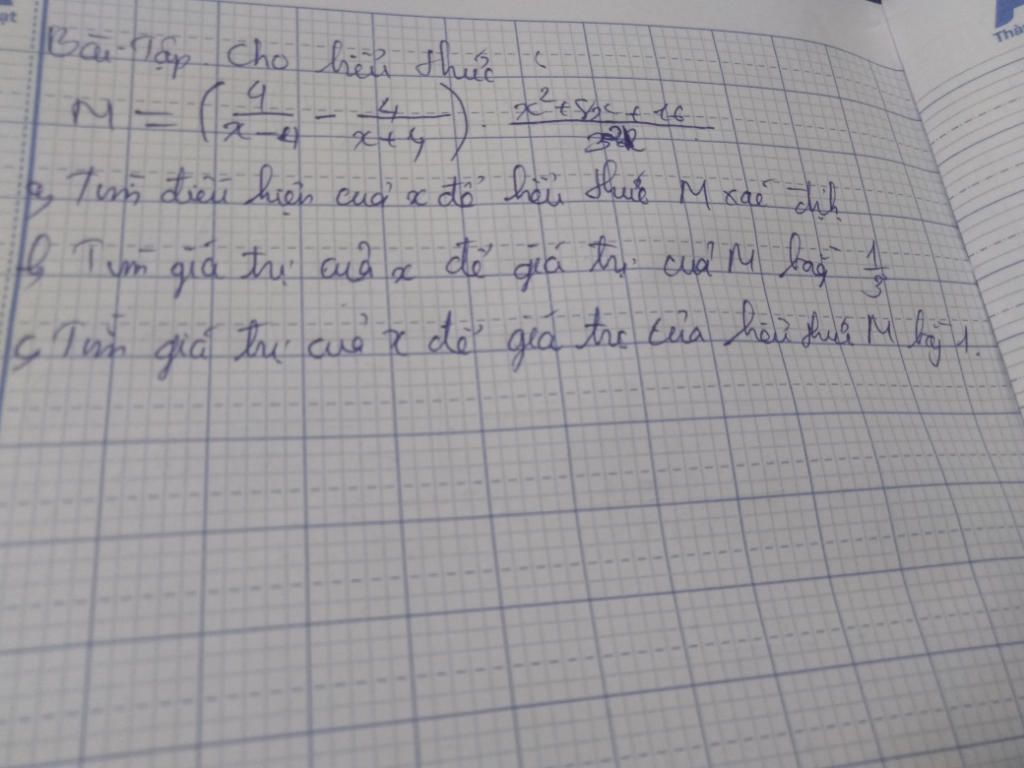 Bài Tập Cho biểu thức :
M = (4/(x-4) - 4/(x+4)) . (x²+8x+16)/32
a, Tìm điều kiện của x để biểu thức M xác định
b, Tìm giá trị của x để giá trị của M bằng 1/3
c, Tìm giá trị của x để giá trị của biểu thức M bằng 1.